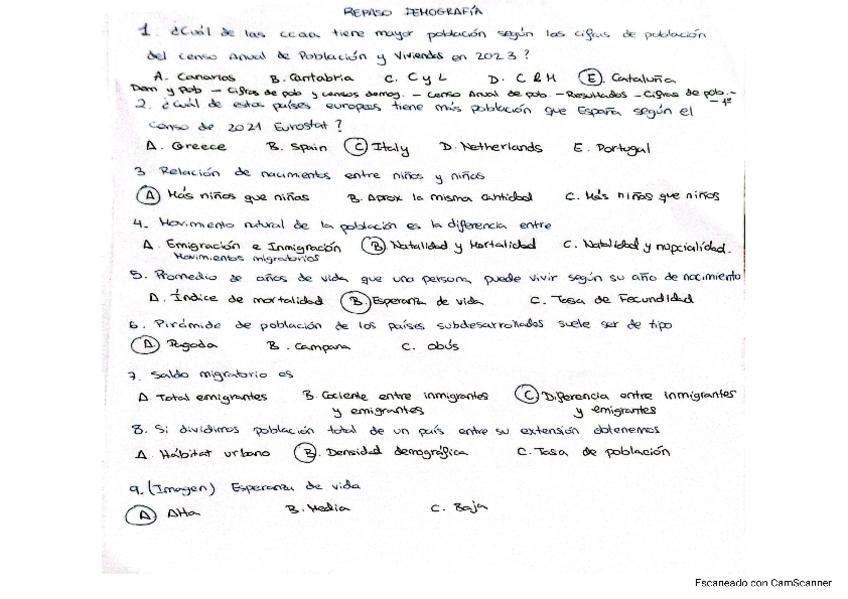 REPASO DEMOGRAFÍA
1. ¿Cuál de las CCAA tiene mayor población según las cifras de población
del censo Anual de Población y Viviendas en 2023?
A. Canarias B. Cantabria C. C y L D. C R M E. Cataluña
Dem y Pob – Cifras de pob y censos demog. – Censo Anual de pob. – Resultados – Cifras de pob. –
– 1º
2. ¿Cuál de estos países europeos tiene más población que España según el
Censo de 2021 Eurostat?
A. Greece B. Spain C. Italy D. Netherlands E. Portugal
3. Relación de nacimientos entre niños y niñas
A Más niños que niñas B. Aprox la misma cantidad C. Más niñas que niños
4. Movimiento natural de la población es la diferencia entre
A. Emigración e Inmigración B. Natalidad y Mortalidad C. Natalidad y nupcialidad.
Movimientos migratorios
5. Promedio de años de vida que una persona puede vivir según su año de nacimiento
A. Índice de mortalidad B. Esperanza de vida C. Tasa de Fecundidad
6. Pirámide de población de los países subdesarrollados suele ser de tipo
A Pagoda B. Campana C. Obús
7. Saldo migratorio es
A. Total emigrantes B. Cociente entre inmigrantes C. Diferencia entre inmigrantes
y emigrantes y emigrantes
8. Si dividimos población total de un país entre su extensión obtenemos
A. Hábitat urbano B. Densidad demográfica C. Tasa de población
9. (Imagen) Esperanza de vida
A Alta B. Media C. Baja
Escaneado con CamScanner